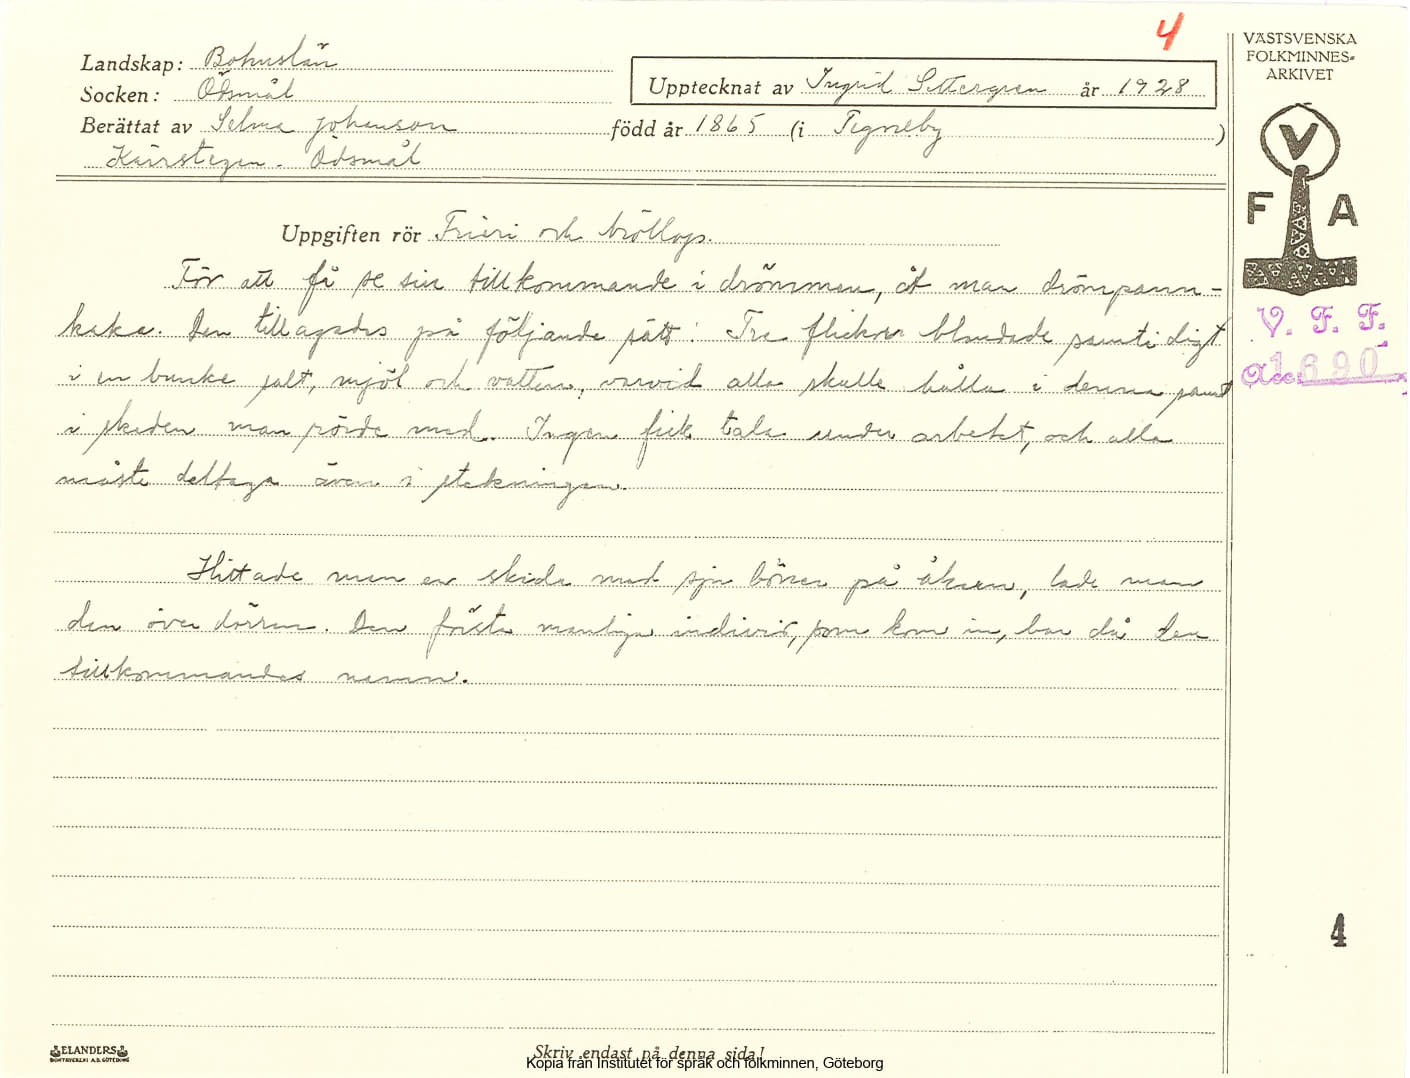 4
Landskap: Bohuslän
Socken: Ödsmål
Upptecknat av Ingrid Settergren år 1928
Berättat av Selma Johansson född år 1865 (i Tegneby )
Ödsmål
Uppgiften rör Frieri och bröllop.
För att få se sin tillkommande i drömmen, åt man drömpann-
kaka. Den tillagades på följande sätt: Tre flickor blandade samtidigt
i en bunke salt, mjöl och vatten, varvid alla skulle hålla i denna samt
i skeden man rörde med. Ingen fick tala under arbetet, och alla
måste deltaga även i stekningen.
Hittade man en skida med sju bönor på åkern, lade man
den över dörren. Den första manliga individ, som kom in, bar då den
tillkommandes namn.
VÄSTSVENSKA
FOLKMINNES-
ARKIVET
V
F A
V. F. F.
Acc. 1690
4
ELANDERS
BOKTRYCKERI A.B. GÖTEBORG
Skriv endast på denna sida!
Kopia från Institutet för språk och folkminnen, Göteborg